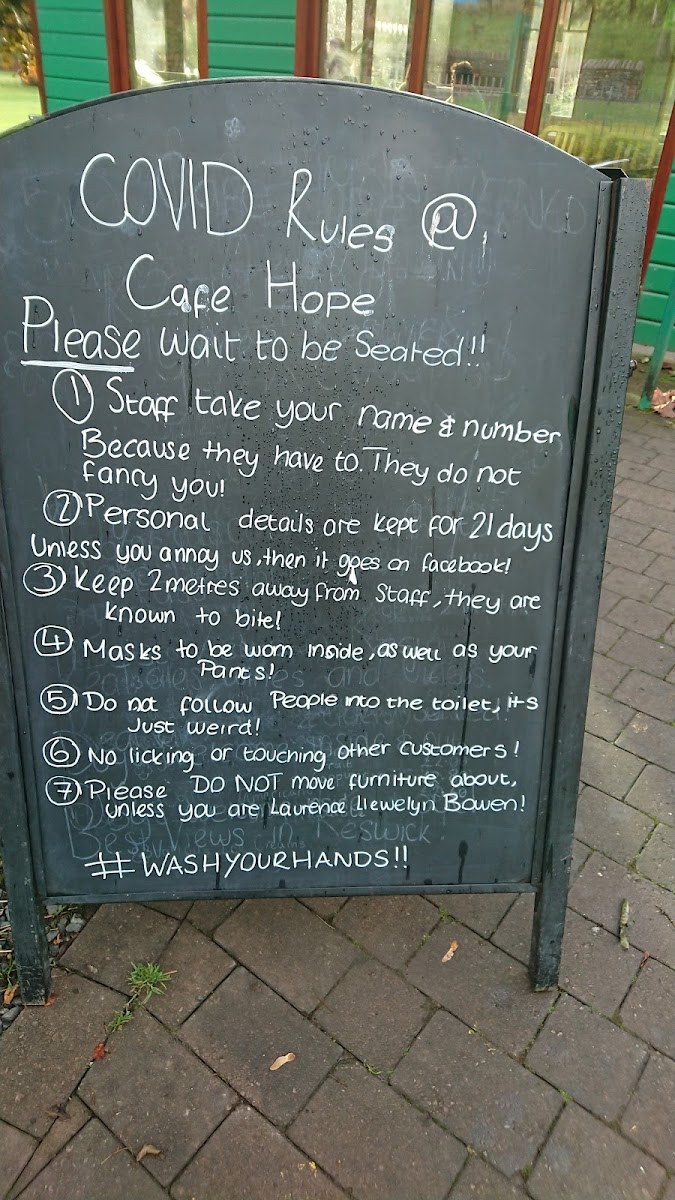 COVID Rules @
Cafe Hope
Please wait to be Seated!!
① Staff take your name & number
Because they have to. They do not
fancy you!
② Personal details are kept for 21 days
Unless you annoy us, then it goes on facebook!
③ Keep 2 metres away from Staff, they are
known to bite!
④ Masks to be worn inside, as well as your
Pants!
⑤ Do not follow People into the toilet, its
Just weird!
⑥ No licking or touching other customers!
⑦ Please DO NOT move furniture about,
unless you are Laurence Llewelyn Bowen!
Best Views in Keswick
#WASHYOURHANDS!!